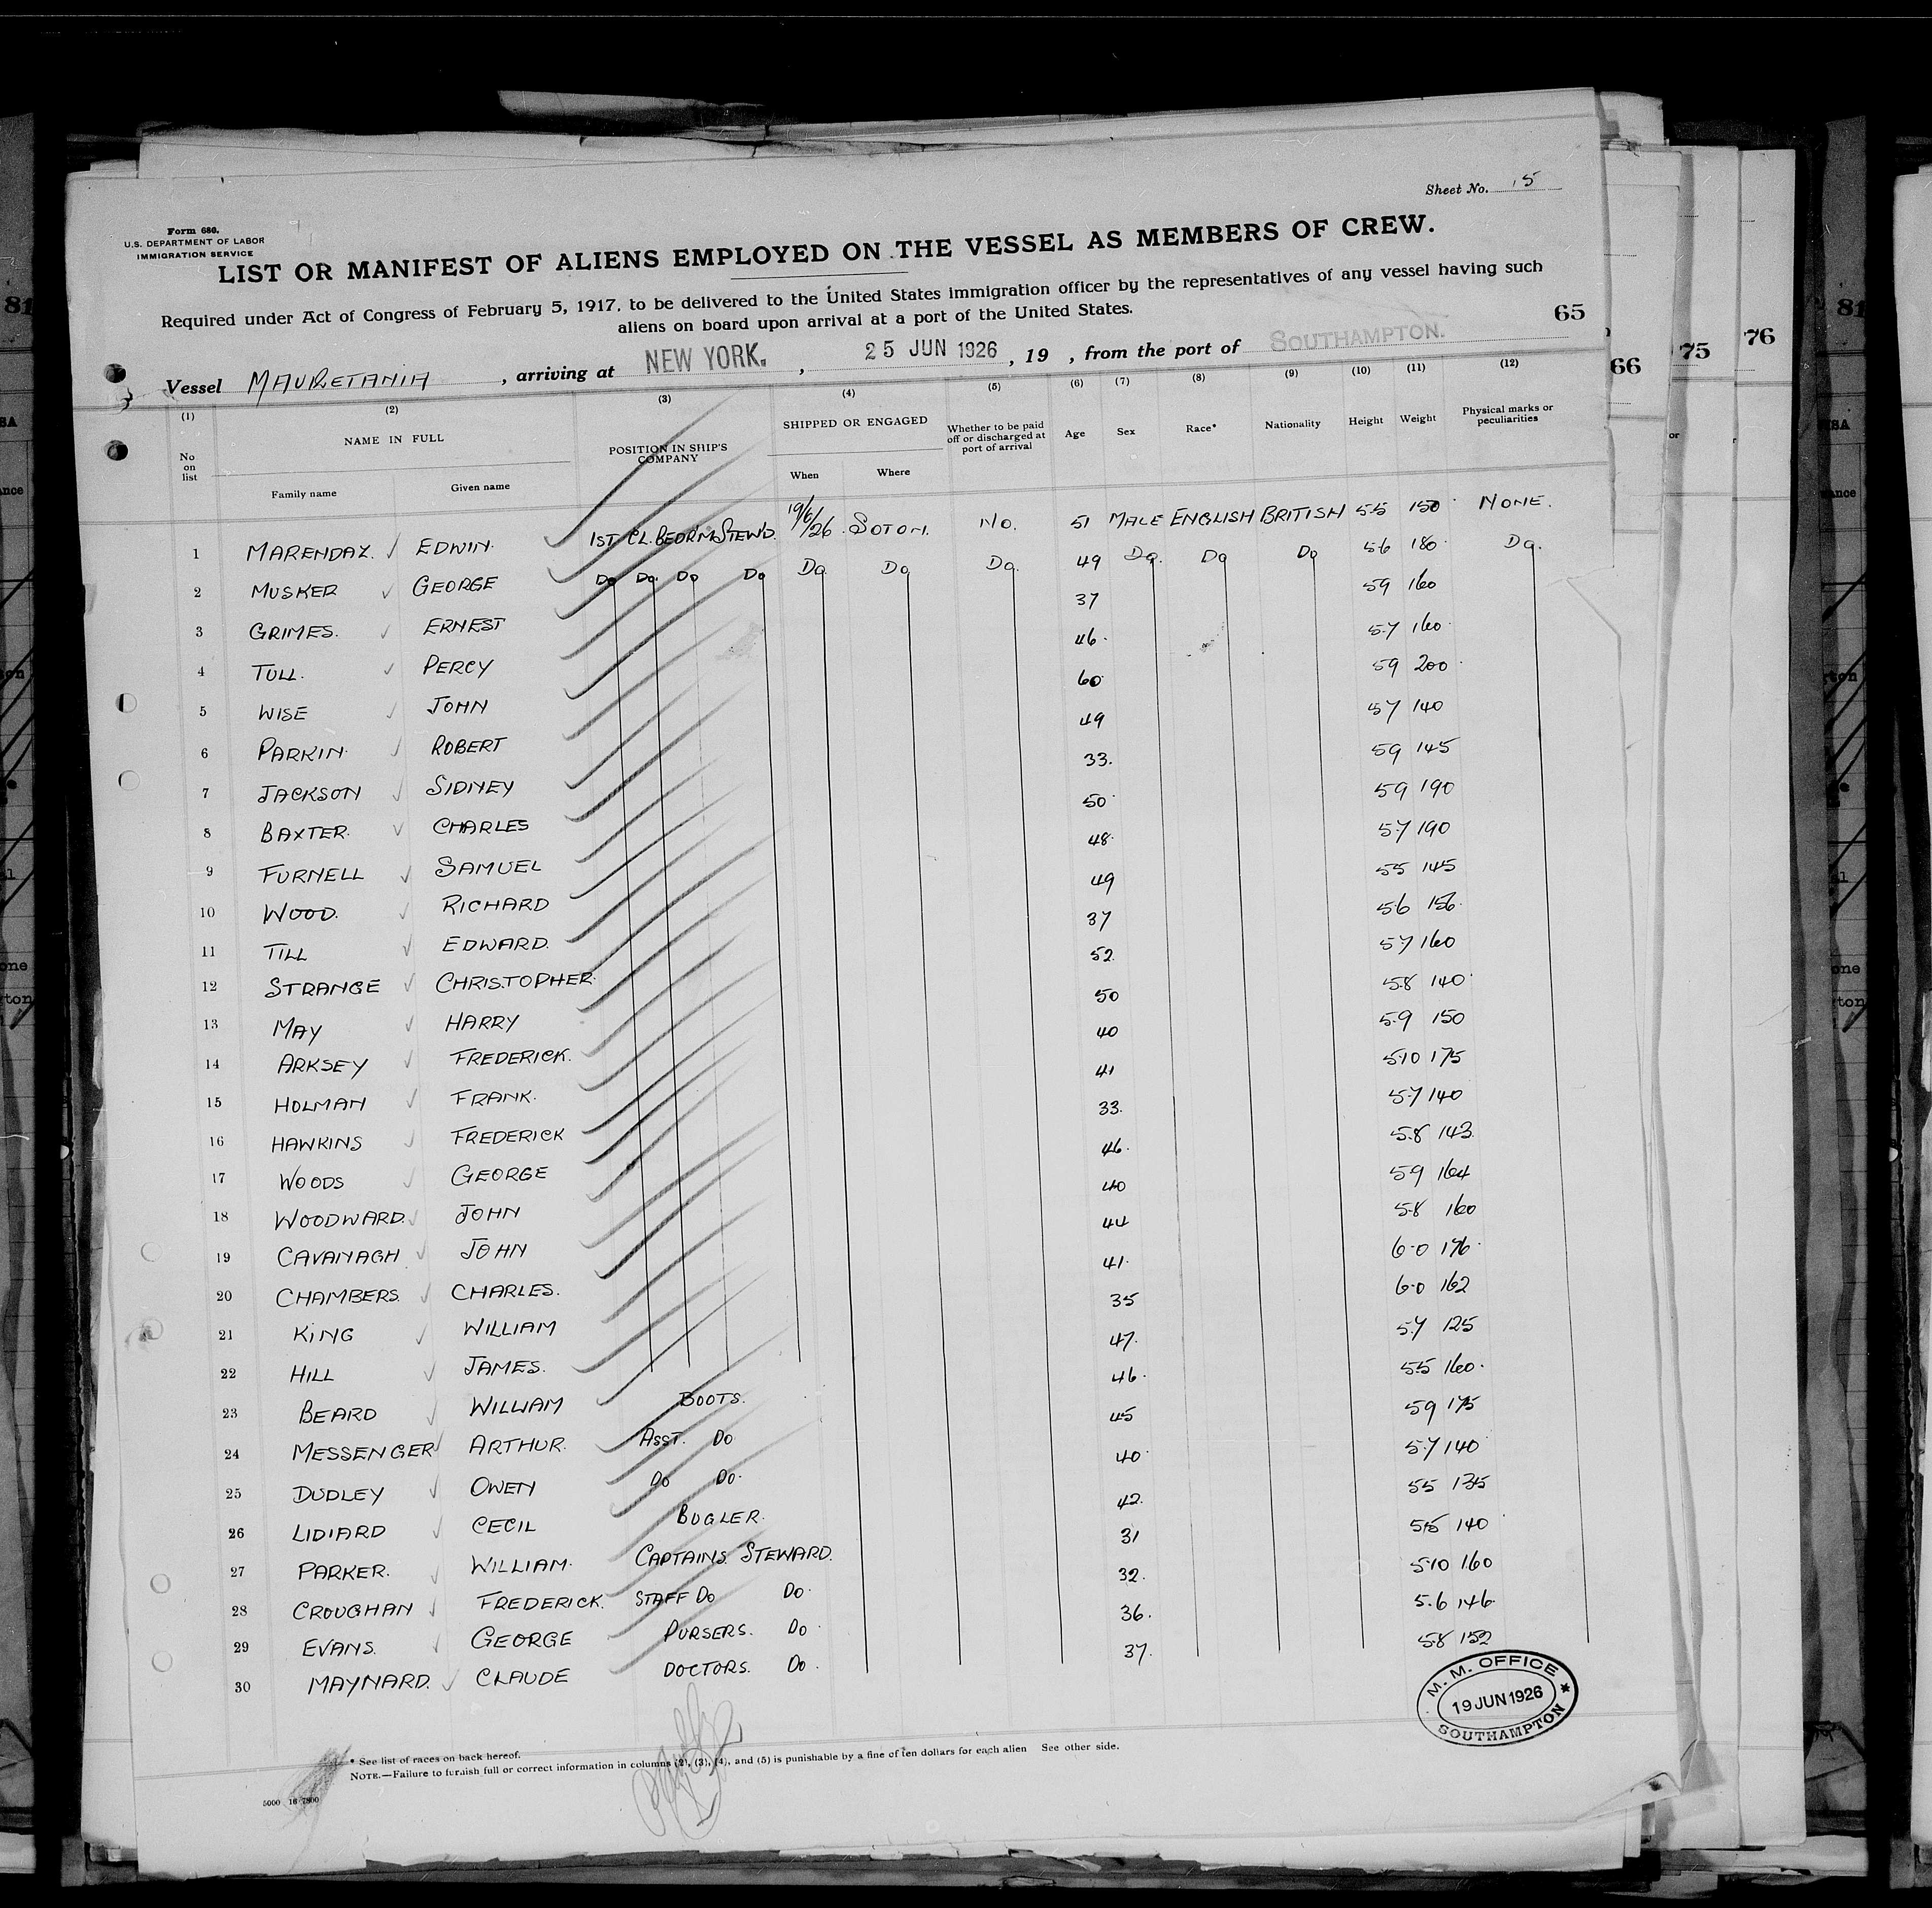 Sheet No. 15
Form 686.
U.S. DEPARTMENT OF LABOR
IMMIGRATION SERVICE
LIST OR MANIFEST OF ALIENS EMPLOYED ON THE VESSEL AS MEMBERS OF CREW.
Required under Act of Congress of February 5, 1917, to be delivered to the United States immigration officer by the representatives of any vessel having such
aliens on board upon arrival at a port of the United States.
65
Vessel MAURETANIA, arriving at NEW YORK., 25 JUN 1926, 19 , from the port of SOUTHAMPTON.
66 75 76
(1) (2) (3) (4) (5) (6) (7) (8) (9) (10) (11) (12)
No on list NAME IN FULL POSITION IN SHIP'S COMPANY SHIPPED OR ENGAGED Whether to be paid off or discharged at port of arrival Age Sex Race* Nationality Height Weight Physical marks or peculiarities
Family name Given name When Where
1 MARENDAZ. EDWIN. 1ST CL. BEDR'M STEW'D. 19/6/26 SOTON. No. 51 MALE ENGLISH BRITISH 55 150 NONE.
2 MUSKER GEORGE Do Do. Do Do Do. Do Do. 49 Do. Do Do 56 180 Do.
3 GRIMES. ERNEST 37 59 160
4 TULL. PERCY 46. 5.7 160
5 WISE JOHN 60 59 200
6 PARKIN. ROBERT 49 57 140
7 JACKSON SIDNEY 33. 59 145
8 BAXTER. CHARLES 50 59 190
9 FURNELL SAMUEL 48. 5.7 190
10 WOOD. RICHARD 49 55 145
11 TILL EDWARD. 37 5.6 156
12 STRANGE CHRISTOPHER. 52. 5.7 160
13 MAY HARRY 50 5.8 140
14 ARKSEY FREDERICK. 40 5.9 150
15 HOLMAN FRANK. 41 5.10 175
16 HAWKINS FREDERICK 33. 5.7 140
17 WOODS GEORGE 46. 5.8 143
18 WOODWARD. JOHN 40 59 164
19 CAVANAGH JOHN 44 5.8 160
20 CHAMBERS. CHARLES. 41. 6.0 176
21 KING WILLIAM 35 6.0 162
22 HILL JAMES. 47. 5.7 125
23 BEARD WILLIAM BOOTS. 46. 5.5 160.
24 MESSENGER ARTHUR. ASST. Do 45 59 175
25 DUDLEY OWEN Do Do. 40 5.7 140
26 LIDIARD CECIL BUGLER. 42. 55 135
27 PARKER. WILLIAM. CAPTAINS. STEWARD. 31 5.5 140
28 CROUGHAN FREDERICK. STAFF Do Do. 32. 5.10 160
29 EVANS. GEORGE PURSERS. Do 36. 5.6 146
30 MAYNARD. CLAUDE DOCTORS. Do. 37. 5.8 152
M. M. OFFICE
19 JUN 1926
SOUTHAMPTON
* See list of races on back hereof.
NOTE.—Failure to furnish full or correct information in columns (2), (3), (4), and (5) is punishable by a fine of ten dollars for each alien See other side.
5000 16 7800